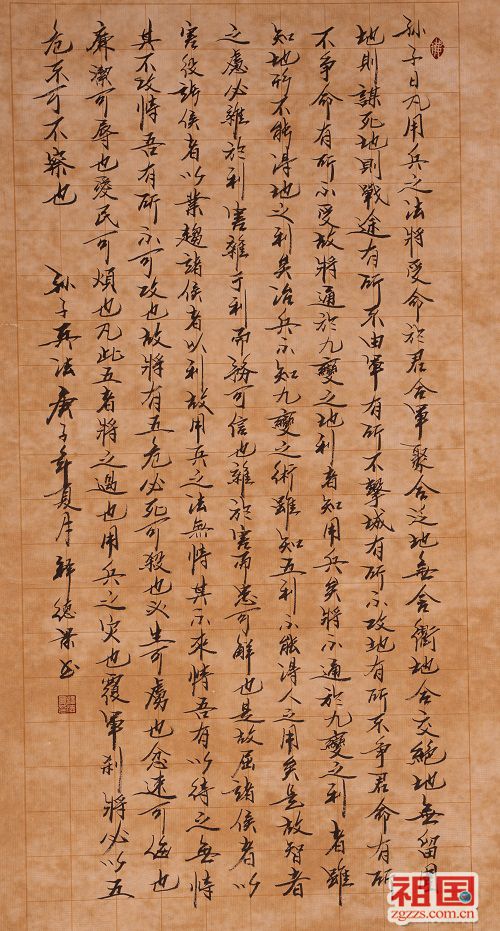 孙子曰凡用兵之法將受命於君合軍聚合泛地無舍衢地合交絶地無留
地則謀死地則戰途有所不由軍有所不擊城有所不攻地有所不争君命有所
不争命有所不受故將通於九變之地利者知用兵矣將不通於九變之利者雖
知地形不能得地之利矣治兵不知九變之術雖知五利不能得人之用矣是故智者
之慮必雜於利害雜于利而務可信也雜於害而患可解也是故屈諸侯者以
害役諸侯者以業趨諸侯者以利故用兵之法無恃其不來恃吾有以待之無恃
其不攻恃吾有所不可攻也故將有五危必死可殺也必生可虜也忿速可侮也
廉潔可辱也愛民可煩也凡此五者將之過也用兵之灾也覆軍刹將必以五
危不可不察也 孙子兵法 庚子年夏月 韩德梁书
祖国
zgzzs.com.cn